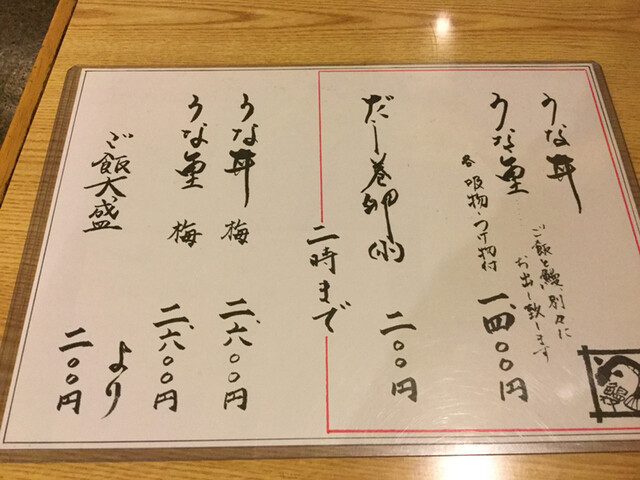 うな丼
うな重
ご飯と鰻、別々に
お出し致します
各 吸物・つけ物付
一、四〇〇円
だし巻卵(小)
二〇〇円
二時まで
うな丼 梅
二、六〇〇円
うな重 梅
二、六〇〇円
ご飯大盛
より
二〇〇円